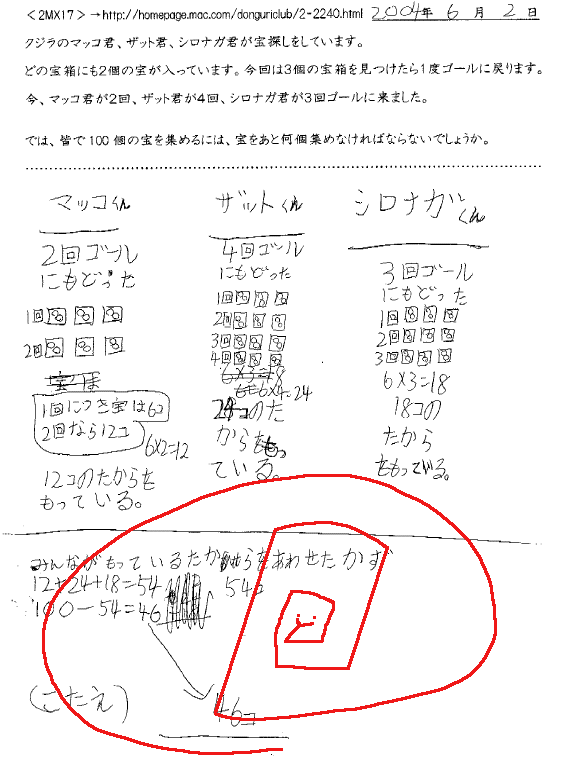 <2MX17>→http://homepage.mac.com/donguriclub/2-2240.html 2004年 6月 2日
クジラのマッコ君、ザット君、シロナガ君が宝探しをしています。
どの宝箱にも2個の宝が入っています。今回は3個の宝箱を見つけたら1度ゴールに戻ります。
今、マッコ君が2回、ザット君が4回、シロナガ君が3回ゴールに来ました。
では、皆で100個の宝を集めるには、宝をあと何個集めなければならないでしょうか。
マッコくん
2回ゴール
にもどった
1回
2回
1回につき宝は6コ
2回なら12コ
6×2=12
12コのたからを
もっている。
ザットくん
4回ゴール
にもどった
1回
2回
3回
4回
6×3=18
6×4=24
24コのた
からをもっ
ている。
シロナガくん
3回ゴール
にもどった
1回
2回
3回
6×3=18
18コの
たから
をもっている。
みんながもっているたからをあわせたかず
12+24+18=54 54コ
100-54=46
(こたえ) 46コ